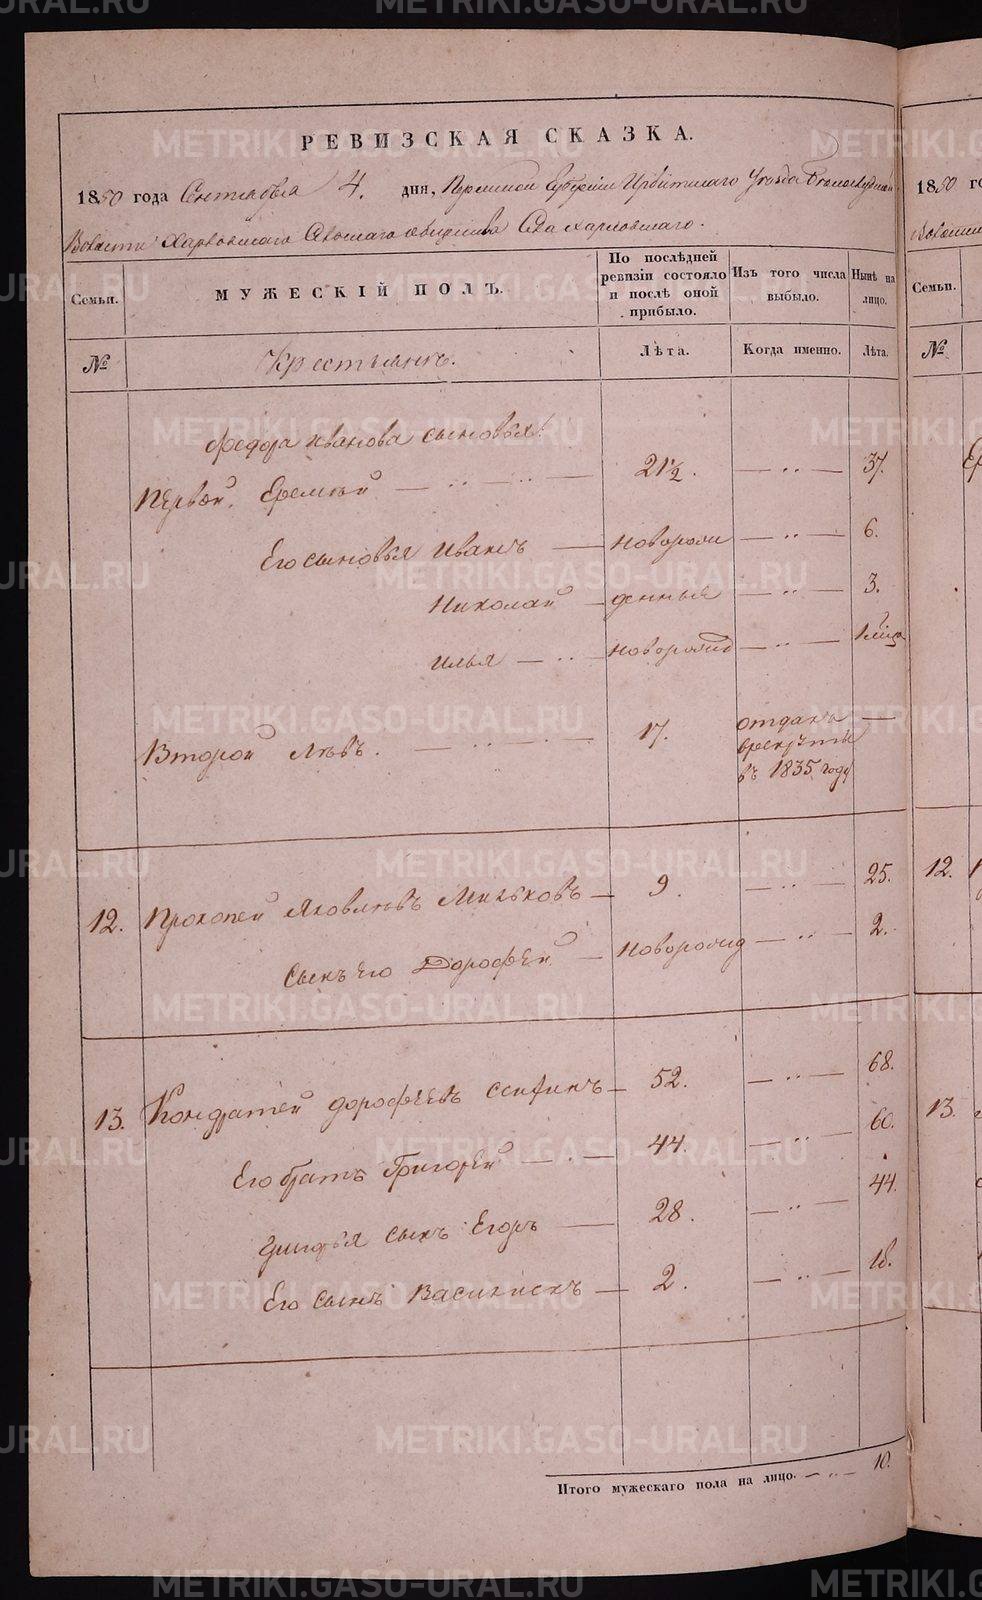 РЕВИЗСКАЯ СКАЗКА.
1850 года Сентября 4. дня, Пермской Губернии Ирбитскаго Уезда
Волости Харловскаго Сельскаго общества Села Харловскаго.
Семьи.
МУЖЕСКІЙ ПОЛЪ.
По послѣдней ревизіи состояло и послѣ оной прибыло.
Изъ того числа выбыло.
Нынѣ на лицо.
№
Крестьянъ.
Лѣта.
Когда именно.
Лѣта.
Федора Иванова сыновья:
Первой. Еремѣй — 21½. — 37.
Его сыновья Иванъ — новорож — 6.
Николай — денныя — 3.
Илья — новорожд — 1 мѣсяц
Второй Лѣвъ. — 17. отданъ —
врекруты
въ 1835 году
12. Прокопей Яковлевъ Мильковъ — 9. — 25.
Сынъ его Дорофей — Новорожд — 2.
13. Кондратей дорофеевъ — 52. — 68.
Его братъ Григорей — 44. — 60.
Григорья сынъ Егоръ — 28. — 44.
Его сынъ Василискъ — 2. — 18.
Итого мужескаго пола на лицо. — 10.
1850
Волости
Семьи.
№
12.
13.
METRIKI.GASO-URAL.RU